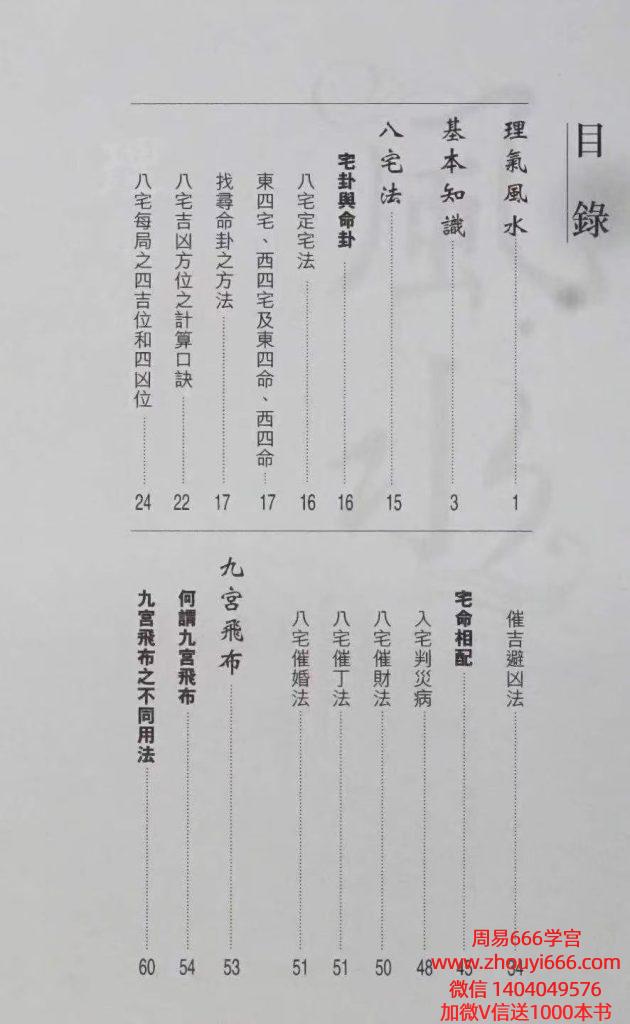 目錄
理氣風水 1
基本知識 3
八宅法 15
宅卦與命卦 16
八宅定宅法 16
東四宅、西四宅及東四命、西四命 17
找尋命卦之方法 17
八宅吉凶方位之計算口訣 22
八宅每局之四吉位和四凶位 24
催吉避凶法 34
宅命相配 45
入宅判災病 48
八宅催財法 50
八宅催丁法 51
八宅催婚法 51
九宮飛布 53
何謂九宮飛布 54
九宮飛布之不同用法 60
周易666学宫
www.zhouyi666.com
微信 1404049576
加微V信送1000本书